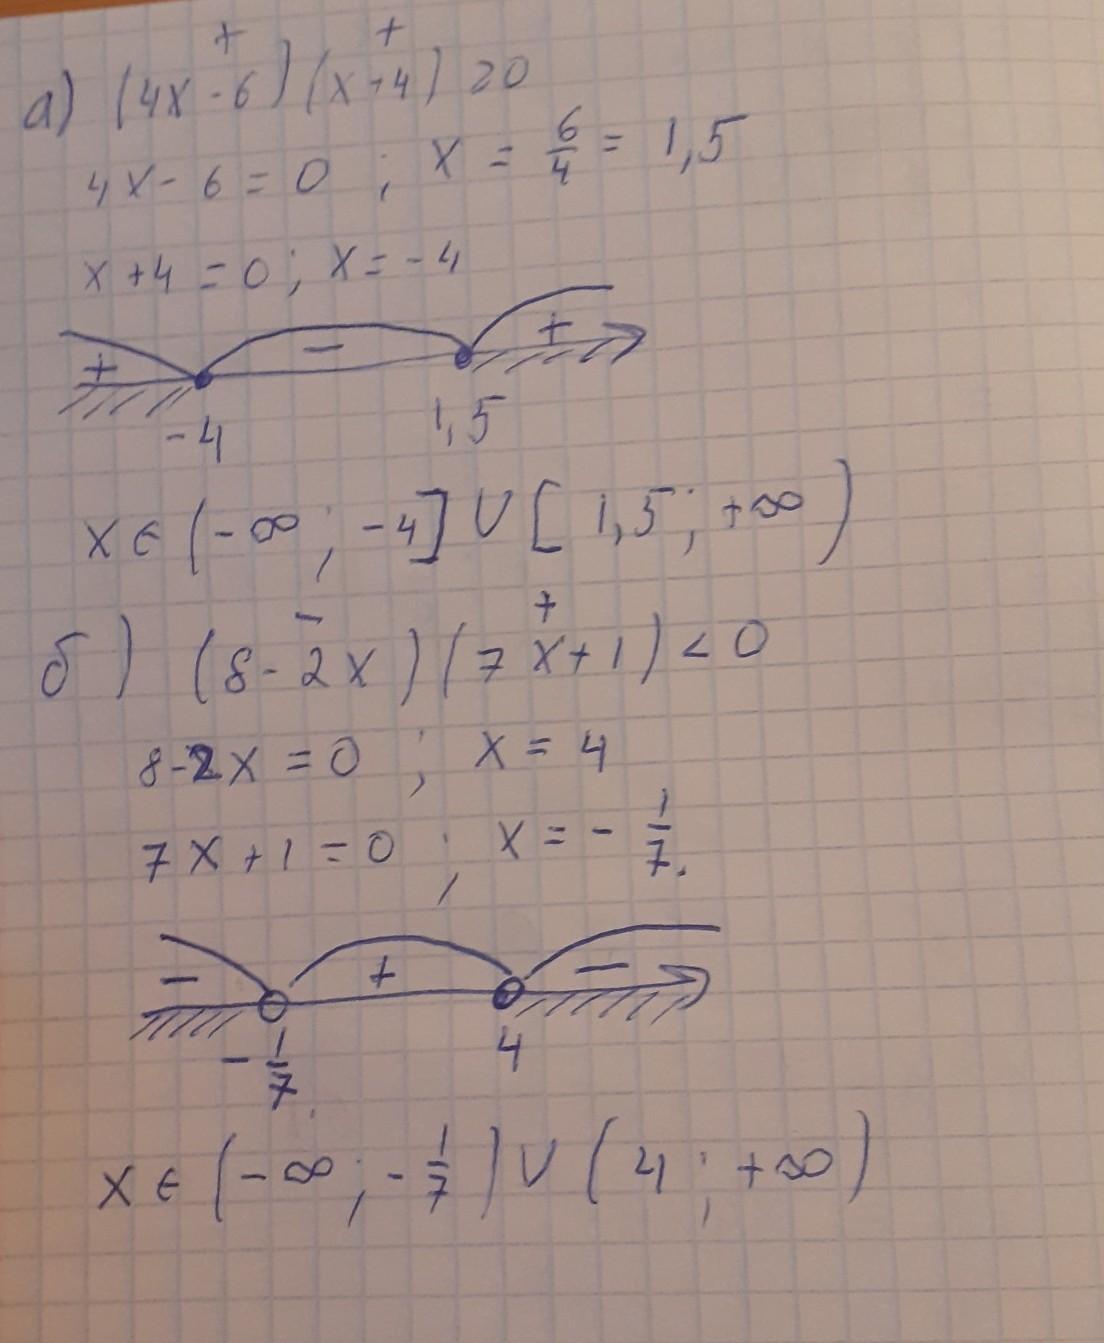 + +
а) (4x - 6)(x+4) ≥0
4x - 6 = 0 ; x = 6/4 = 1,5
x + 4 = 0 ; x = -4
+ - +
-4 1,5
x ∈ (-∞ ; -4] ∪ [1,5 ; +∞)
- +
б) (8 - 2x)(7x+1) < 0
8-2x = 0 ; x = 4
7x + 1 = 0 ; x = - 1/7.
- + -
- 1/7 4
x ∈ (-∞ ; - 1/7) ∪ (4 ; +∞)